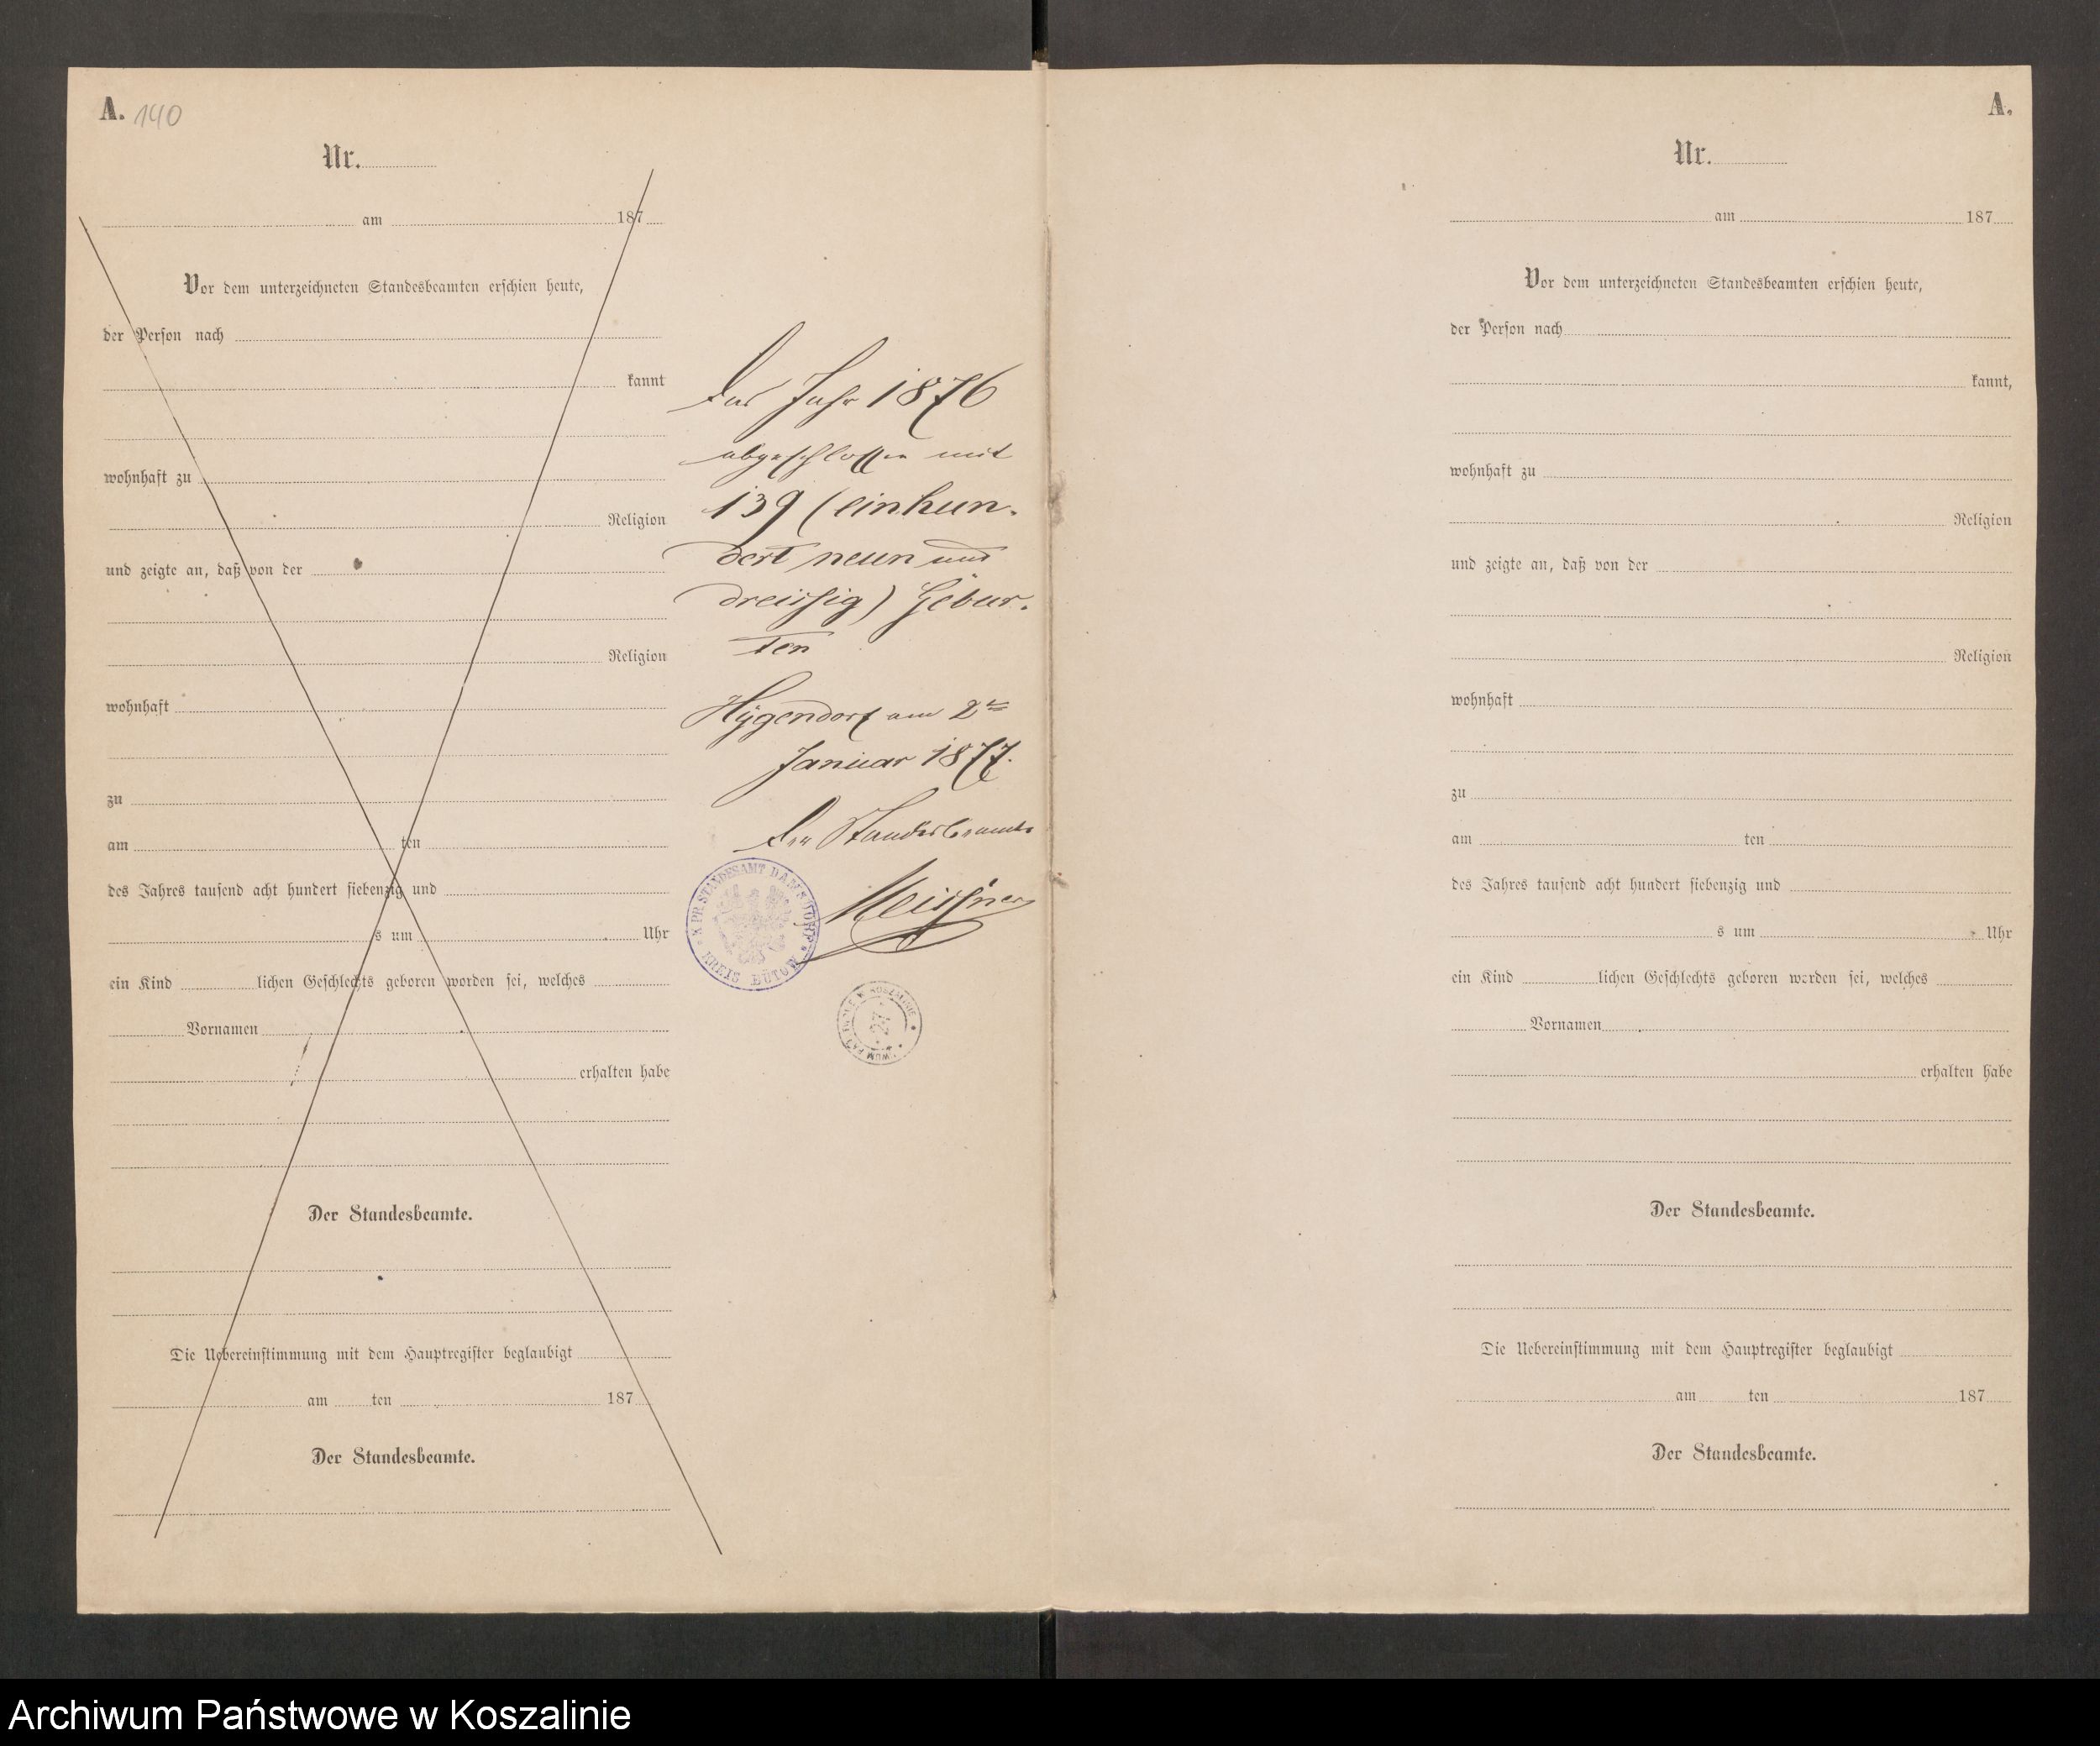 A. 140
Nr.
am 187
Vor dem unterzeichneten Standesbeamten erschien heute,
der Person nach
kannt
wohnhaft zu
Religion
und zeigte an, daß von der
Religion
wohnhaft
zu
am ten
des Jahres tausend acht hundert siebenzig und
s um Uhr
ein Kind lichen Geschlechts geboren worden sei, welches
Vornamen
erhalten habe
Der Standesbeamte.
Die Uebereinstimmung mit dem Hauptregister beglaubigt
am ten 187
Der Standesbeamte.
Das Jahr 1876
abgeschlossen mit
139 (einhun-
dert neun und
dreissig) Gebur-
ten
Hygendorf am 2ten
Januar 1877.
Der Standesbeamte
Meissner
K. PR. STANDESAMT DAMSDORF
KREIS BÜTOW
27
A.
Nr.
am 187
Vor dem unterzeichneten Standesbeamten erschien heute,
der Person nach
kannt,
wohnhaft zu
Religion
und zeigte an, daß von der
Religion
wohnhaft
zu
am ten
des Jahres tausend acht hundert siebenzig und
s um Uhr
ein Kind lichen Geschlechts geboren worden sei, welches
Vornamen
erhalten habe
Der Standesbeamte.
Die Uebereinstimmung mit dem Hauptregister beglaubigt
am ten 187
Der Standesbeamte.
Archiwum Państwowe w Koszalinie